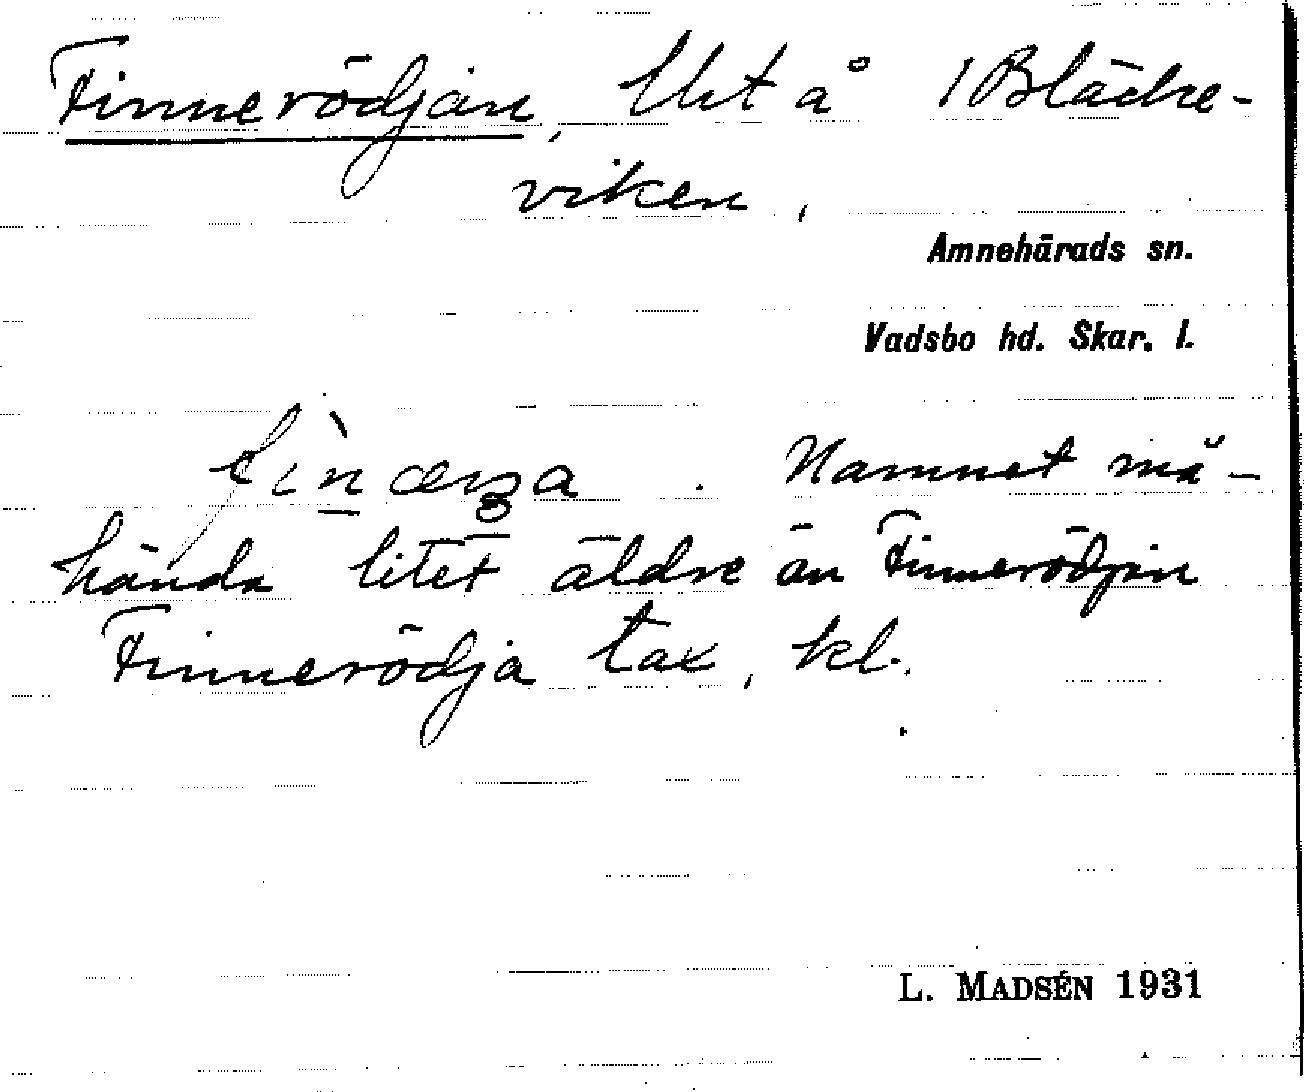 Finnerödjan, Utä å 1 Bläcke-
viken,
Amnehärads sn.
Vadsbo hd. Skar. l.
Namnet må-
hända litet äldre än Finnerödjan
Finnerödja tax, kl.
L. MADSÉN 1931